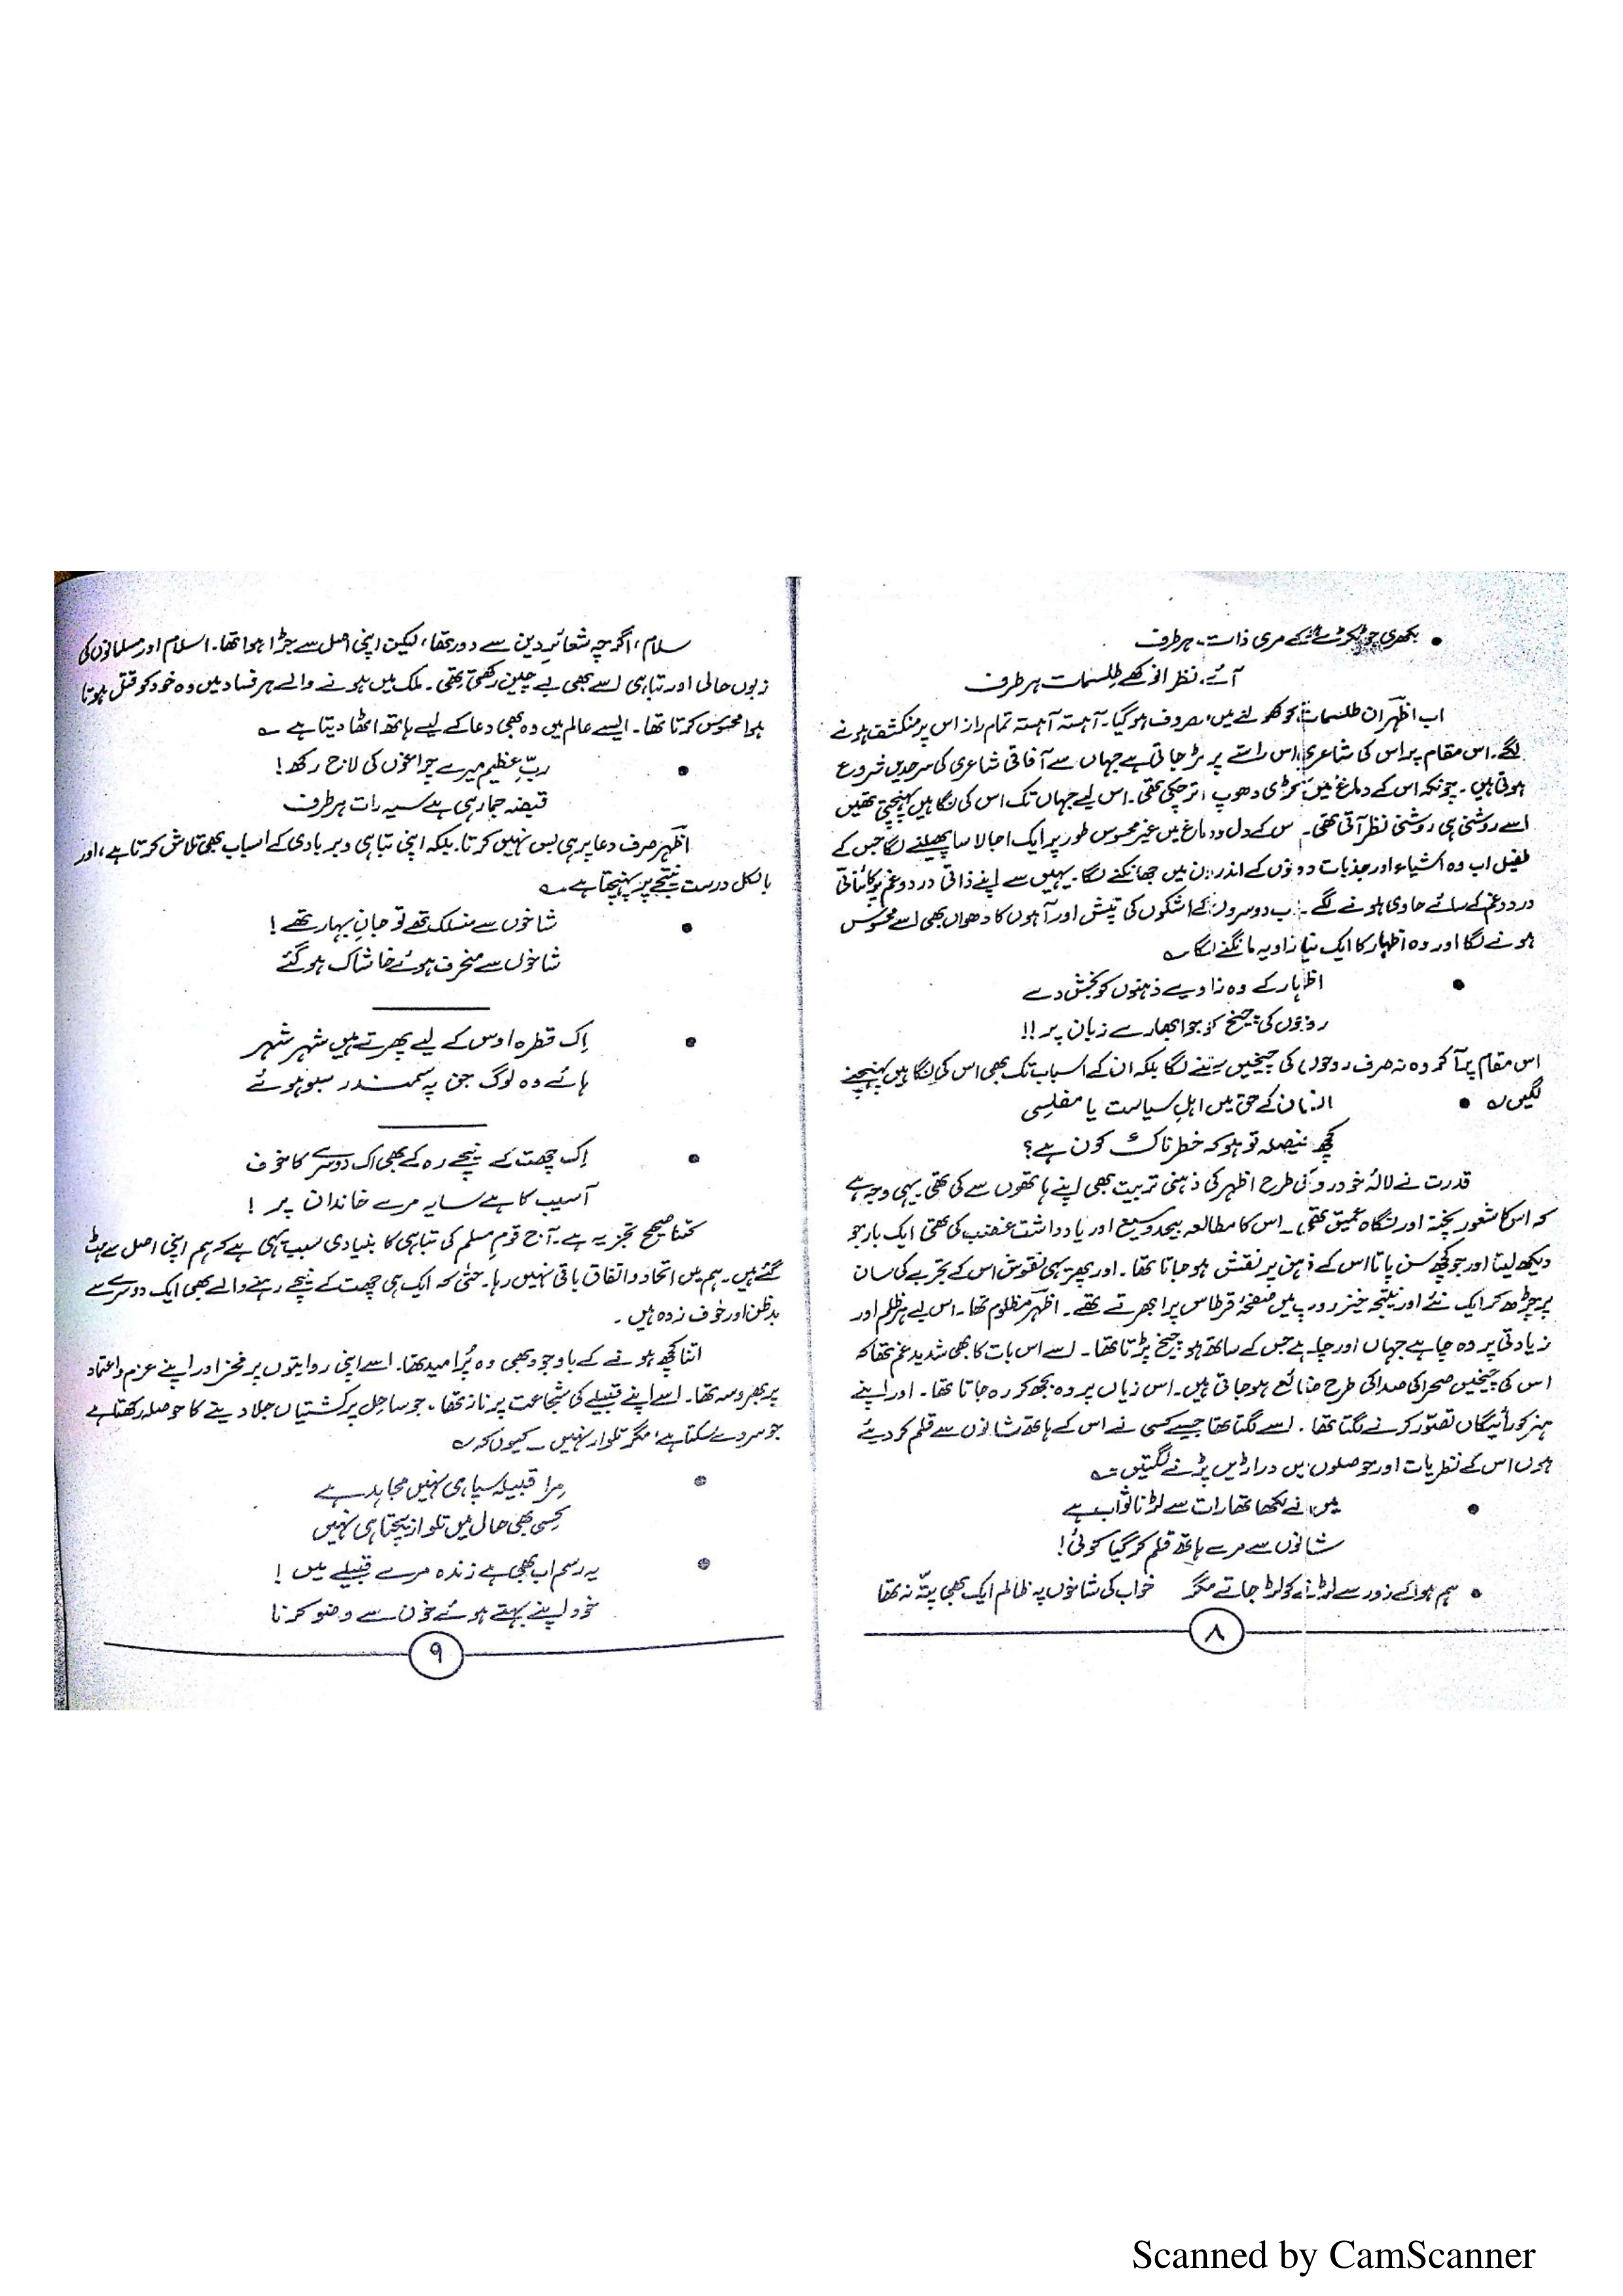 بکھری جو ٹکڑے ٹکڑے مری ذات ہر طرف
آئے نظر انوکھے طلسمات ہر طرف
اب اظہر ان طلسمات کو کھولنے میں مصروف ہو گیا۔ آہستہ آہستہ تمام راز اس پر منکشف ہونے
لگے۔ اس مقام پر اس کی شاعری اس راستے پر پڑ جاتی ہے جہاں سے آفاقی شاعری کی سرحدیں شروع
ہوتی ہیں۔ چونکہ اس کے دماغ میں کڑی دھوپ اتر چکی تھی۔ اس لیے جہاں تک اس کی نگاہیں پہنچتی تھیں
اسے روشنی ہی روشنی نظر آتی تھی۔ اس کے دل و دماغ میں غیر محسوس طور پر ایک اجالا سا پھیلنے لگا جس کے
طفیل اب وہ اشیاء اور جذبات دونوں کے اندرون میں جھانکنے لگا۔ یہیں سے اپنے ذاتی درد و غم پر کائناتی
درد و غم کے سائے حاوی ہونے لگے۔ اب دوسروں کے اشکوں کی تپش اور آہوں کا دھواں بھی اسے محسوس
ہونے لگا اور وہ اظہار کا ایک نیا زاویہ مانگنے لگا ؎
اظہار کے وہ زاویے ذہنوں کو بخش دے
روحوں کی چیخ کو جو ابھارے زبان پر !!
اس مقام پر آ کر وہ نہ صرف روحوں کی چیخیں سننے لگا بلکہ ان کے اسباب تک بھی اس کی نگاہیں پہنچنے
لگیں ؎ • انسان کے حق میں اہلِ سیاست یا مفلسی
کچھ فیصلہ تو ہو کہ خطرناک کون ہے؟
قدرت نے لالۂ خود رو کی طرح اظہر کی ذہنی تربیت بھی اپنے ہاتھوں سے کی تھی یہی وجہ ہے
کہ اس کا شعور پختہ اور نگاہ عمیق تھی۔ اس کا مطالعہ بیحد وسیع اور یادداشت غضب کی تھی ایک بار جو
دیکھ لیتا اور جو کچھ سن پاتا اس کے ذہن پر نقش ہو جاتا تھا۔ اور پھر یہی نقوش اس کے تجربے کی سان
پر چڑھ کر ایک نئے اور نتیجہ خیز روپ میں صفحۂ قرطاس پر ابھرتے تھے۔ اظہر مظلوم تھا۔ اس لیے ہر ظلم اور
زیادتی پر وہ چاہے جہاں اور چاہے جس کے ساتھ ہو چیخ پڑتا تھا۔ اسے اس بات کا بھی شدید غم تھا کہ
اس کی چیخیں صحرا کی صدا کی طرح ضائع ہو جاتی ہیں۔ اس زیاں پر وہ بجھ کر رہ جاتا تھا۔ اور اپنے
ہنر کو رائیگاں تصور کرنے لگتا تھا۔ اسے لگتا تھا جیسے کسی نے اس کے ہاتھ شانوں سے قلم کر دیئے
ہوں اس کے نظریات اور حوصلوں میں دراڑیں پڑنے لگتیں ؎
میں نے لکھا تھا رات سے لڑنا ثواب ہے
شانوں سے مرے ہاتھ قلم کر گیا کوئی!
• ہم ہوا کے زور سے لڑنے کو لڑ جاتے مگر خواب کی شاخوں پہ ظالم ایک بھی پتّہ نہ تھا
۸
سلام، اگرچہ شعائرِ دین سے دور تھا، لیکن اپنی اصل سے جڑا ہوا تھا۔ اسلام اور مسلمانوں کی
زبوں حالی اور تباہی اسے بھی بے چین رکھتی تھی۔ ملک میں ہونے والے ہر فساد میں وہ خود کو قتل ہوتا
ہوا محسوس کرتا تھا۔ ایسے عالم میں وہ بھی دعا کے لیے ہاتھ اٹھا دیتا ہے ؎
• ربِّ عظیم میرے چراغوں کی لاج رکھ!
قبضہ جما رہی ہے سیہ رات ہر طرف
اظہر صرف دعا پر ہی بس نہیں کرتا۔ بلکہ اپنی تباہی و بربادی کے اسباب بھی تلاش کرتا ہے، اور
بالکل درست نتیجے پر پہنچتا ہے ؎
• شاخوں سے منسلک تھے تو جانِ بہار تھے!
شاخوں سے منحرف ہوئے خاشاک ہو گئے
• اِک قطرہ اوس کے لیے پھرتے ہیں شہر شہر
ہائے وہ لوگ جن پہ سمندر سبو ہوئے
• اِک چھت کے نیچے رہ کے بھی اک دوسرے کا خوف
آسیب کا ہے سایہ مرے خاندان پر !
کتنا صحیح تجزیہ ہے۔ آج قومِ مسلم کی تباہی کا بنیادی سبب یہی ہے کہ ہم اپنی اصل سے ہٹ
گئے ہیں۔ ہم میں اتحاد و اتفاق باقی نہیں رہا۔ حتیٰ کہ ایک ہی چھت کے نیچے رہنے والے بھی ایک دوسرے سے
بدظن اور خوف زدہ ہیں۔
اتنا کچھ ہونے کے باوجود بھی وہ پُرامید تھا۔ اسے اپنی روایتوں پر فخر اور اپنے عزم و اعتماد
پر بھروسہ تھا۔ اسے اپنے قبیلے کی شجاعت پر ناز تھا، جو ساحل پر کشتیاں جلا دینے کا حوصلہ رکھتا ہے
جو سر دے سکتا ہے، مگر تلوار نہیں۔ کیوں کہ ؎
• مرا قبیلہ سپاہی نہیں مجاہد ہے
کِسی بھی حال میں تلوار بیچتا ہی نہیں
• یہ رسم اب بھی ہے زندہ مرے قبیلے میں !
خود اپنے بہتے ہوئے خون سے وضو کرنا
۹
Scanned by CamScanner